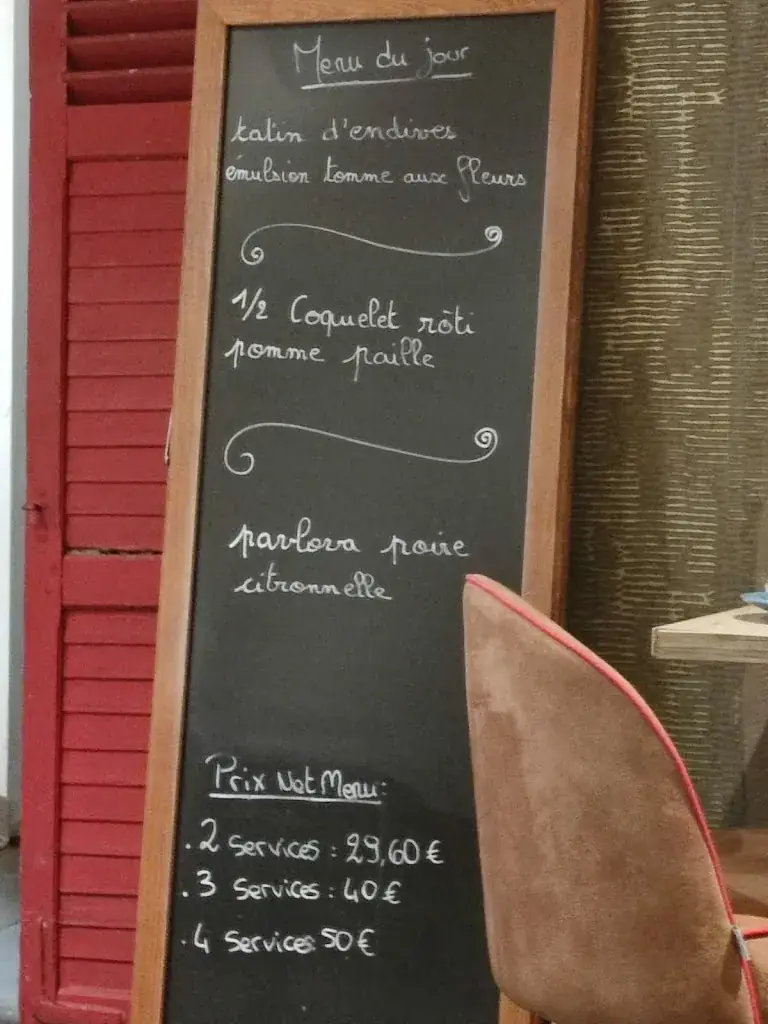 Menu du jour
tatin d'endives
émulsion tomme aux fleurs
1/2 Coquelet rôti
pomme paille
pavlova poire
citronnelle
Prix Net Menu:
. 2 Services : 29,60 €
. 3 Services : 40 €
. 4 Services 50 €